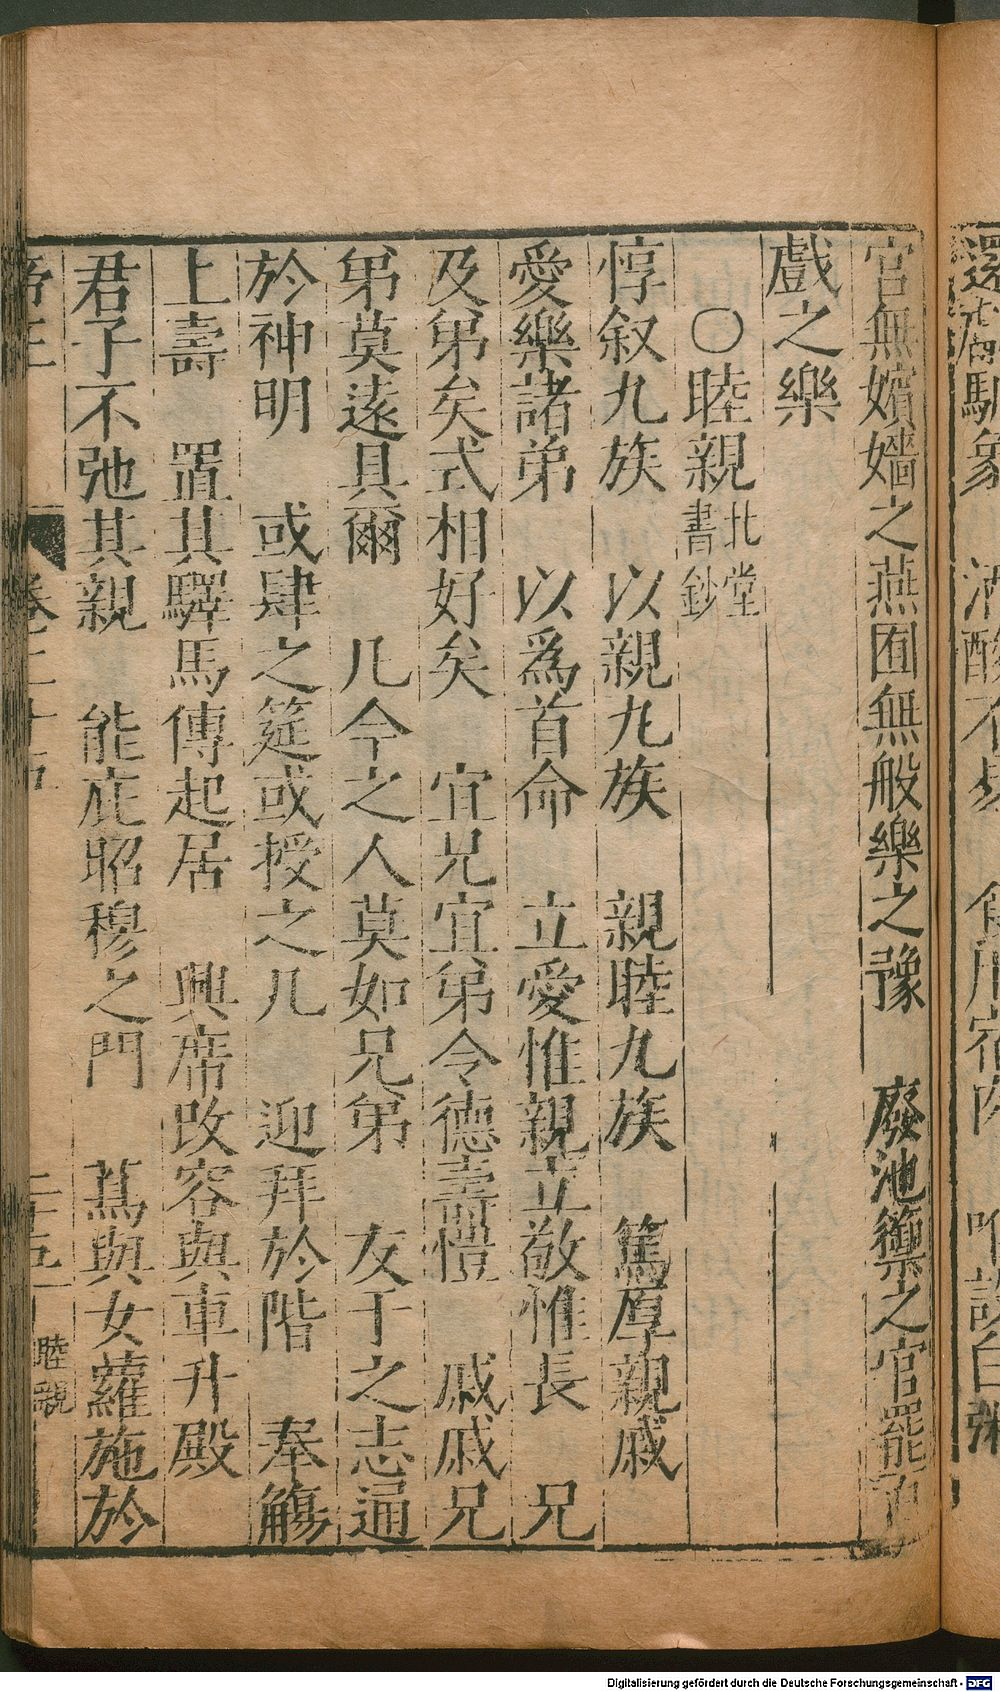 官無嬪嬙之燕囿無般樂之豫　廢池籞之官罷
戲之樂
○睦親北堂書鈔
惇叙九族　以親九族　親睦九族　篤厚親戚
愛樂諸弟　以爲首命　立愛惟親立敬惟長　兄
及弟矣式相好矣　宜兄宜弟令德壽愷　戚戚兄
弟莫遠具爾　凡今之人莫如兄弟　友于之志逼
於神明　或肆之筵或授之几　迎拜於階　奉觴
上壽　置其驛馬傳起居　興席改容與車升殿
君子不弛其親　能庇昭穆之門　蔦與女蘿施於
二十五
睦親
Digitalisierung gefördert durch die Deutsche Forschungsgemeinschaft - DFG